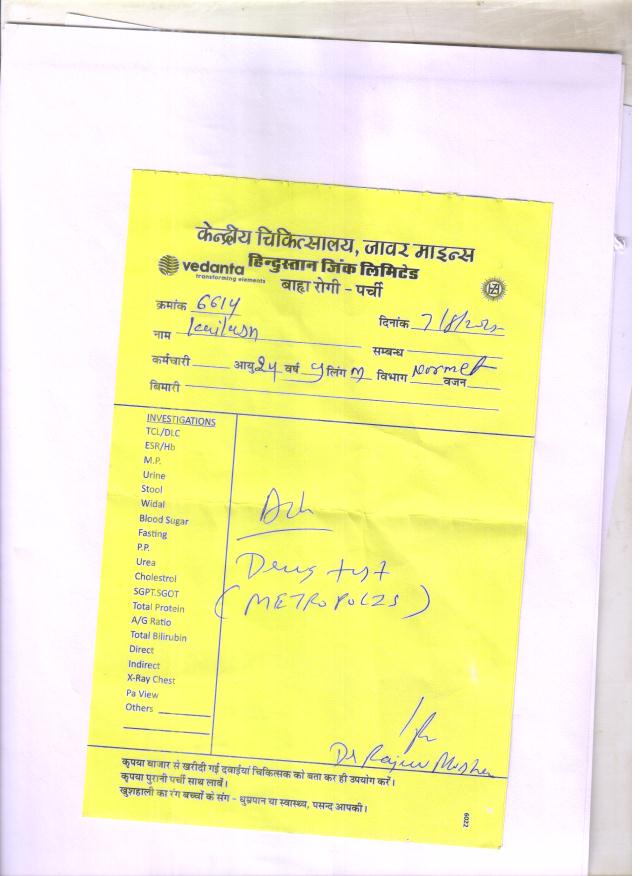 केन्द्रीय चिकित्सालय, जावर माइन्स
vedanta हिन्दुस्तान जिंक लिमिटेड
transforming elements
बाह्य रोगी - पर्ची
क्रमांक 6614 दिनांक 7/8/202
नाम kailash सम्बन्ध
कर्मचारी आयु 24 वर्ष y लिंग M विभाग Normet वजन
बिमारी
INVESTIGATIONS
TCL/DLC
ESR/Hb
M.P.
Urine
Stool
Widal
Blood Sugar
Fasting
P.P.
Urea
Cholestrol
SGPT.SGOT
Total Protein
A/G Ratio
Total Bilirubin
Direct
Indirect
X-Ray Chest
Pa View
Others
Adv
Drug test
(METROPOLIS)
Dr Rajeev
कृपया बाजार से खरीदी गई दवाईयां चिकित्सक को बता कर ही उपयोग करें।
कृपया पुरानी पर्ची साथ लावें।
खुशहाली का रंग बच्चों के संग - धुम्रपान या स्वास्थ्य, पसन्द आपकी।
6022